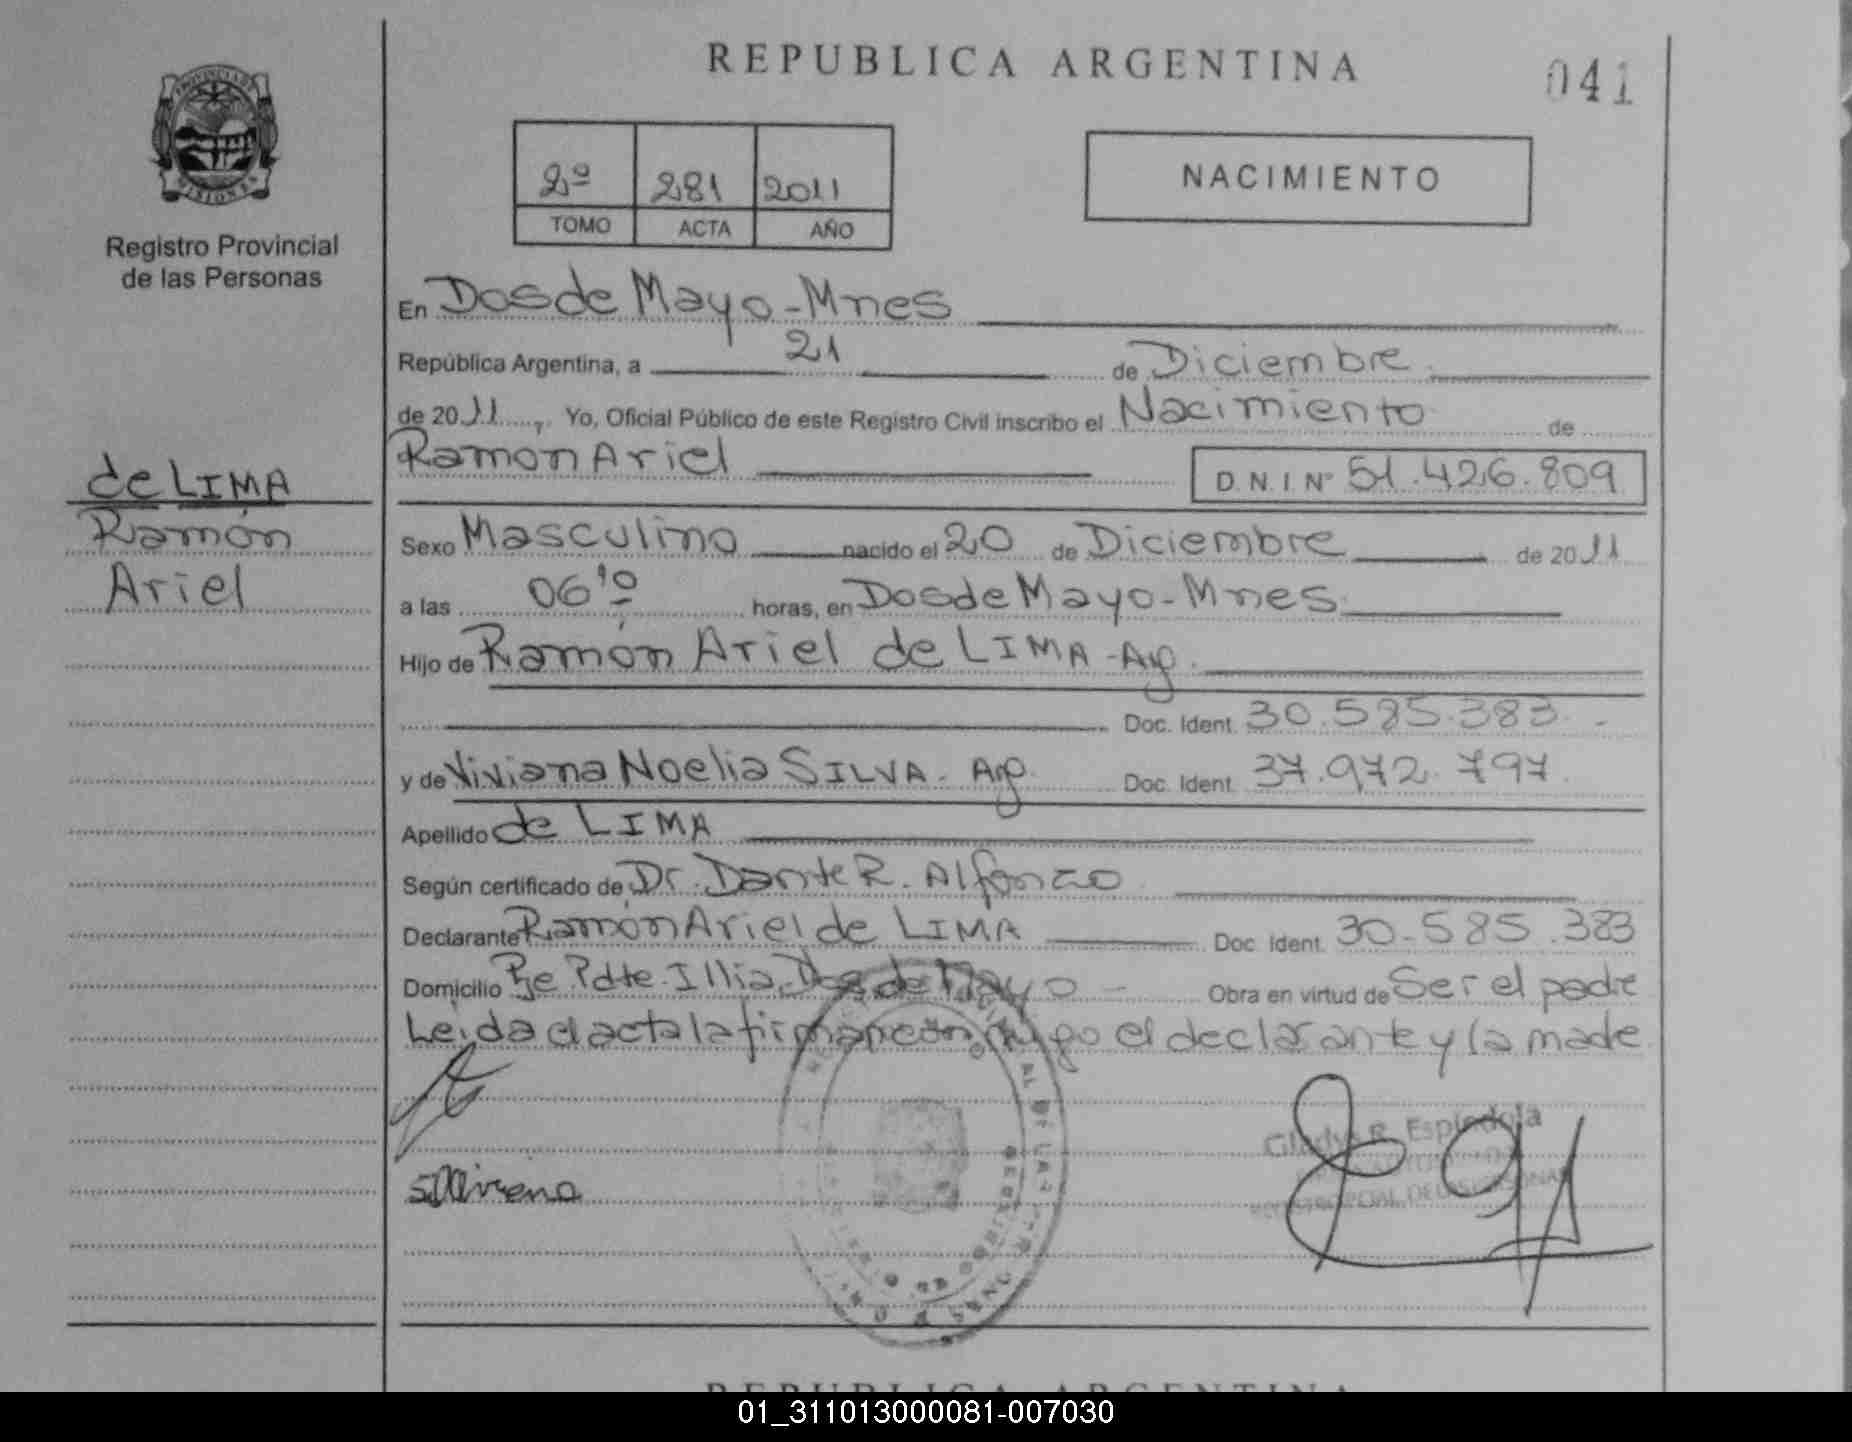 REPUBLICA ARGENTINA
041
PROVINCIA DE
MISIONES
Registro Provincial
de las Personas
2º 281 2011
TOMO ACTA AÑO
NACIMIENTO
En Dos de Mayo - Mnes
República Argentina, a 21 de Diciembre
de 2011, Yo, Oficial Público de este Registro Civil inscribo el Nacimiento de
Ramon Ariel D.N.I. Nº 51.426.809
de LIMA
Ramón
Ariel
Sexo Masculino nacido el 20 de Diciembre de 2011
a las 06'º horas, en Dos de Mayo - Mnes.
Hijo de Ramón Ariel de LIMA - Arg.
Doc. Ident. 30.585.383. -
y de Viviana Noelia SILVA. Arg. Doc. Ident. 37.972.797.
Apellido de LIMA
Según certificado de Dr. Dante R. Alfonzo
Declarante Ramón Ariel de LIMA Doc. Ident. 30.585.383
Domicilio Pje Pdte. Illia Dos de Mayo - Obra en virtud de Ser el padre
Leida el acta la firman conmigo el declarante y la madre
Gladys R. Espindola
REPUBLICA ARGENTINA
01_311013000081-007030